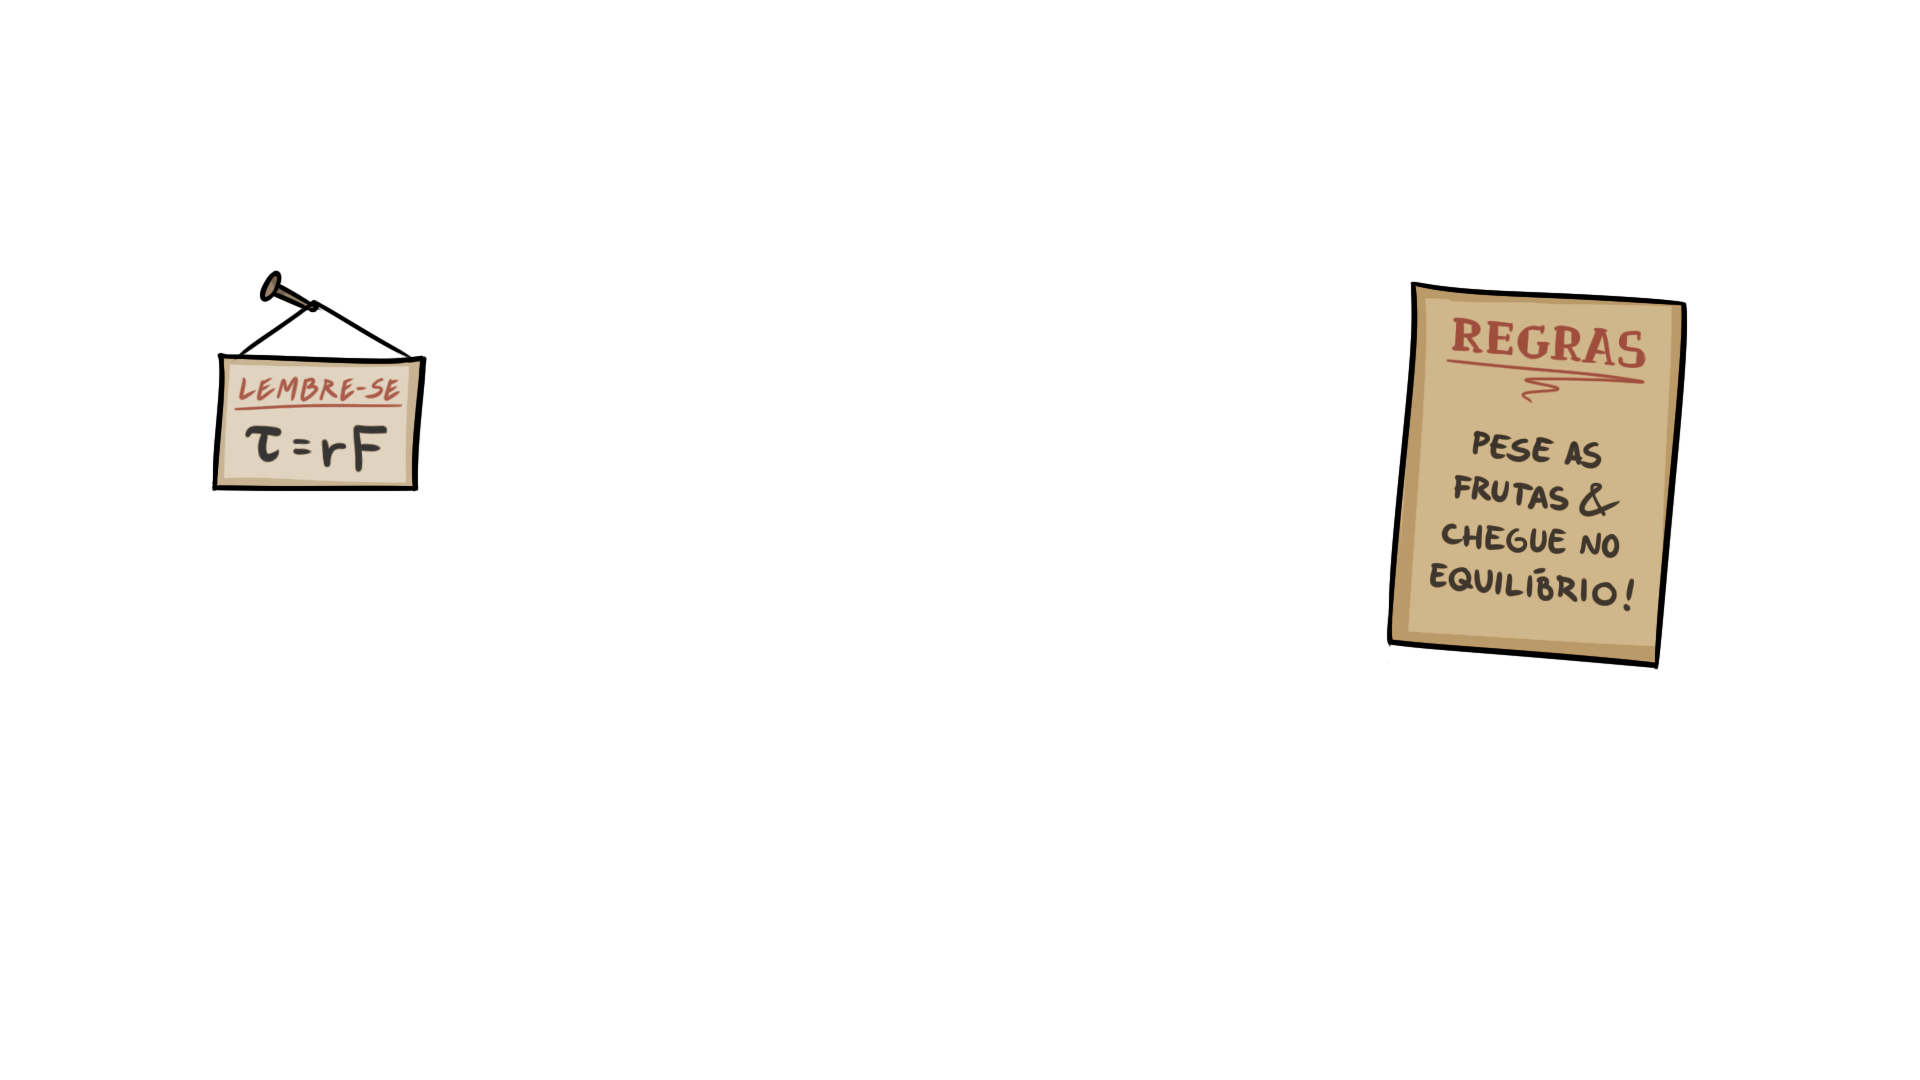 LEMBRE-SE
τ=rF
REGRAS
PESE AS
FRUTAS &
CHEGUE NO
EQUILÍBRIO!